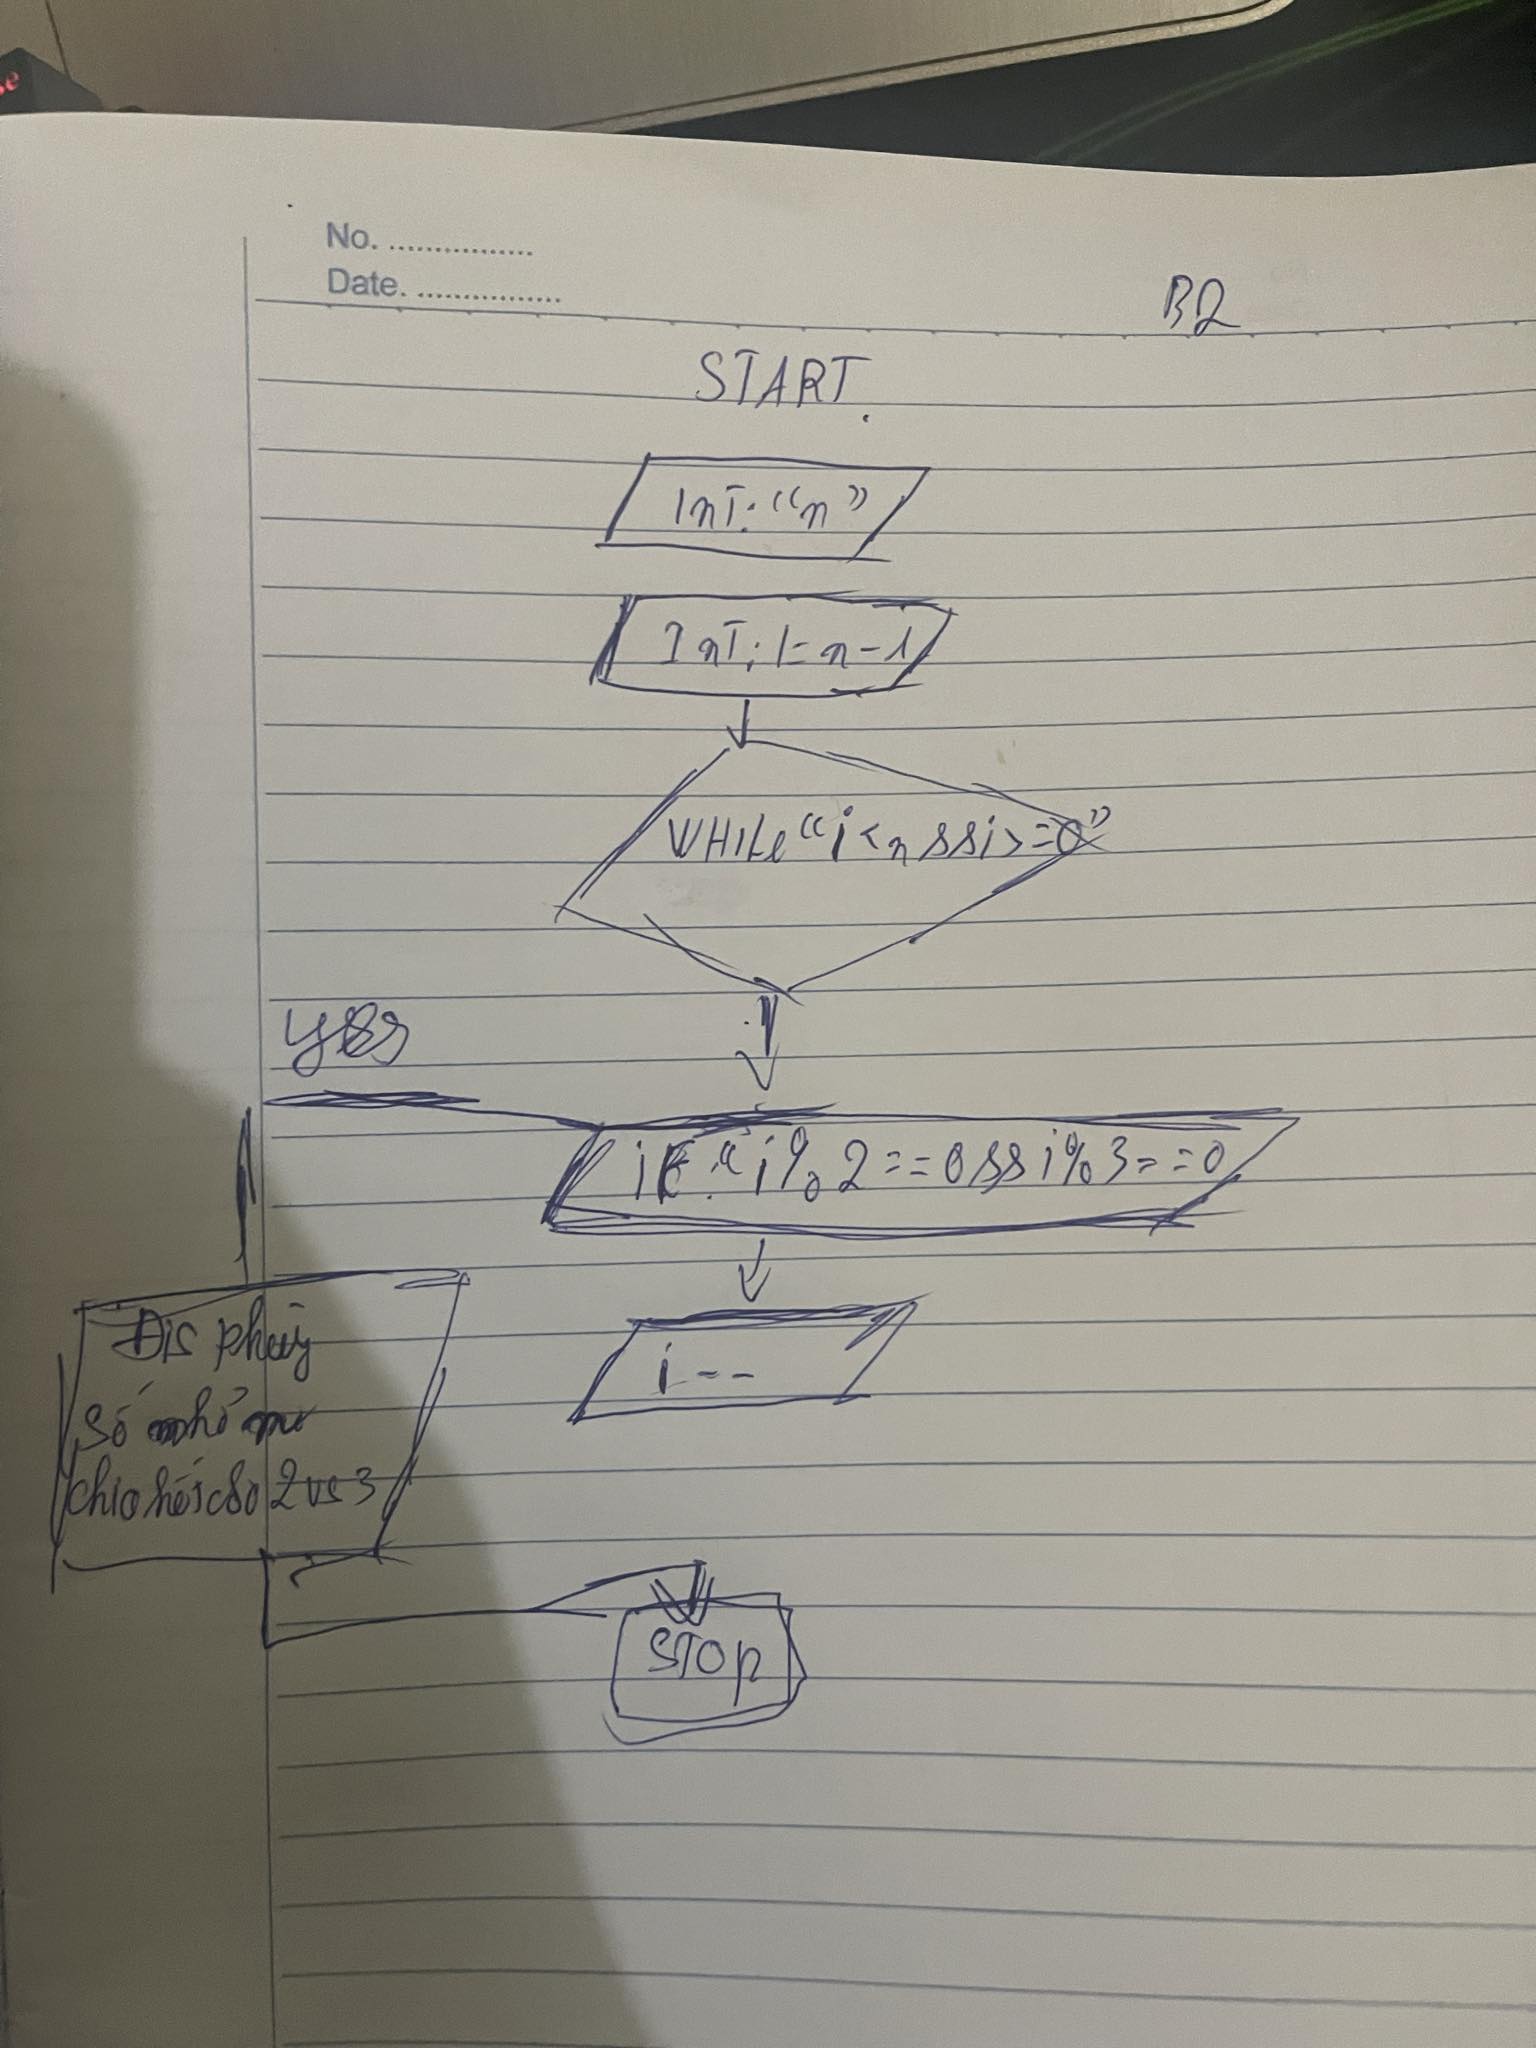 se
No. ................
Date. ................
B2
START.
InT: "n"
InT: I = n - 1
WHILe "i < n && i > = 0"
yes
iF: "i % 2 = = 0 && i % 3 = = 0
i - -
Dis phuy
Số nhỏ
chia hết cho 2 vs 3
STOP